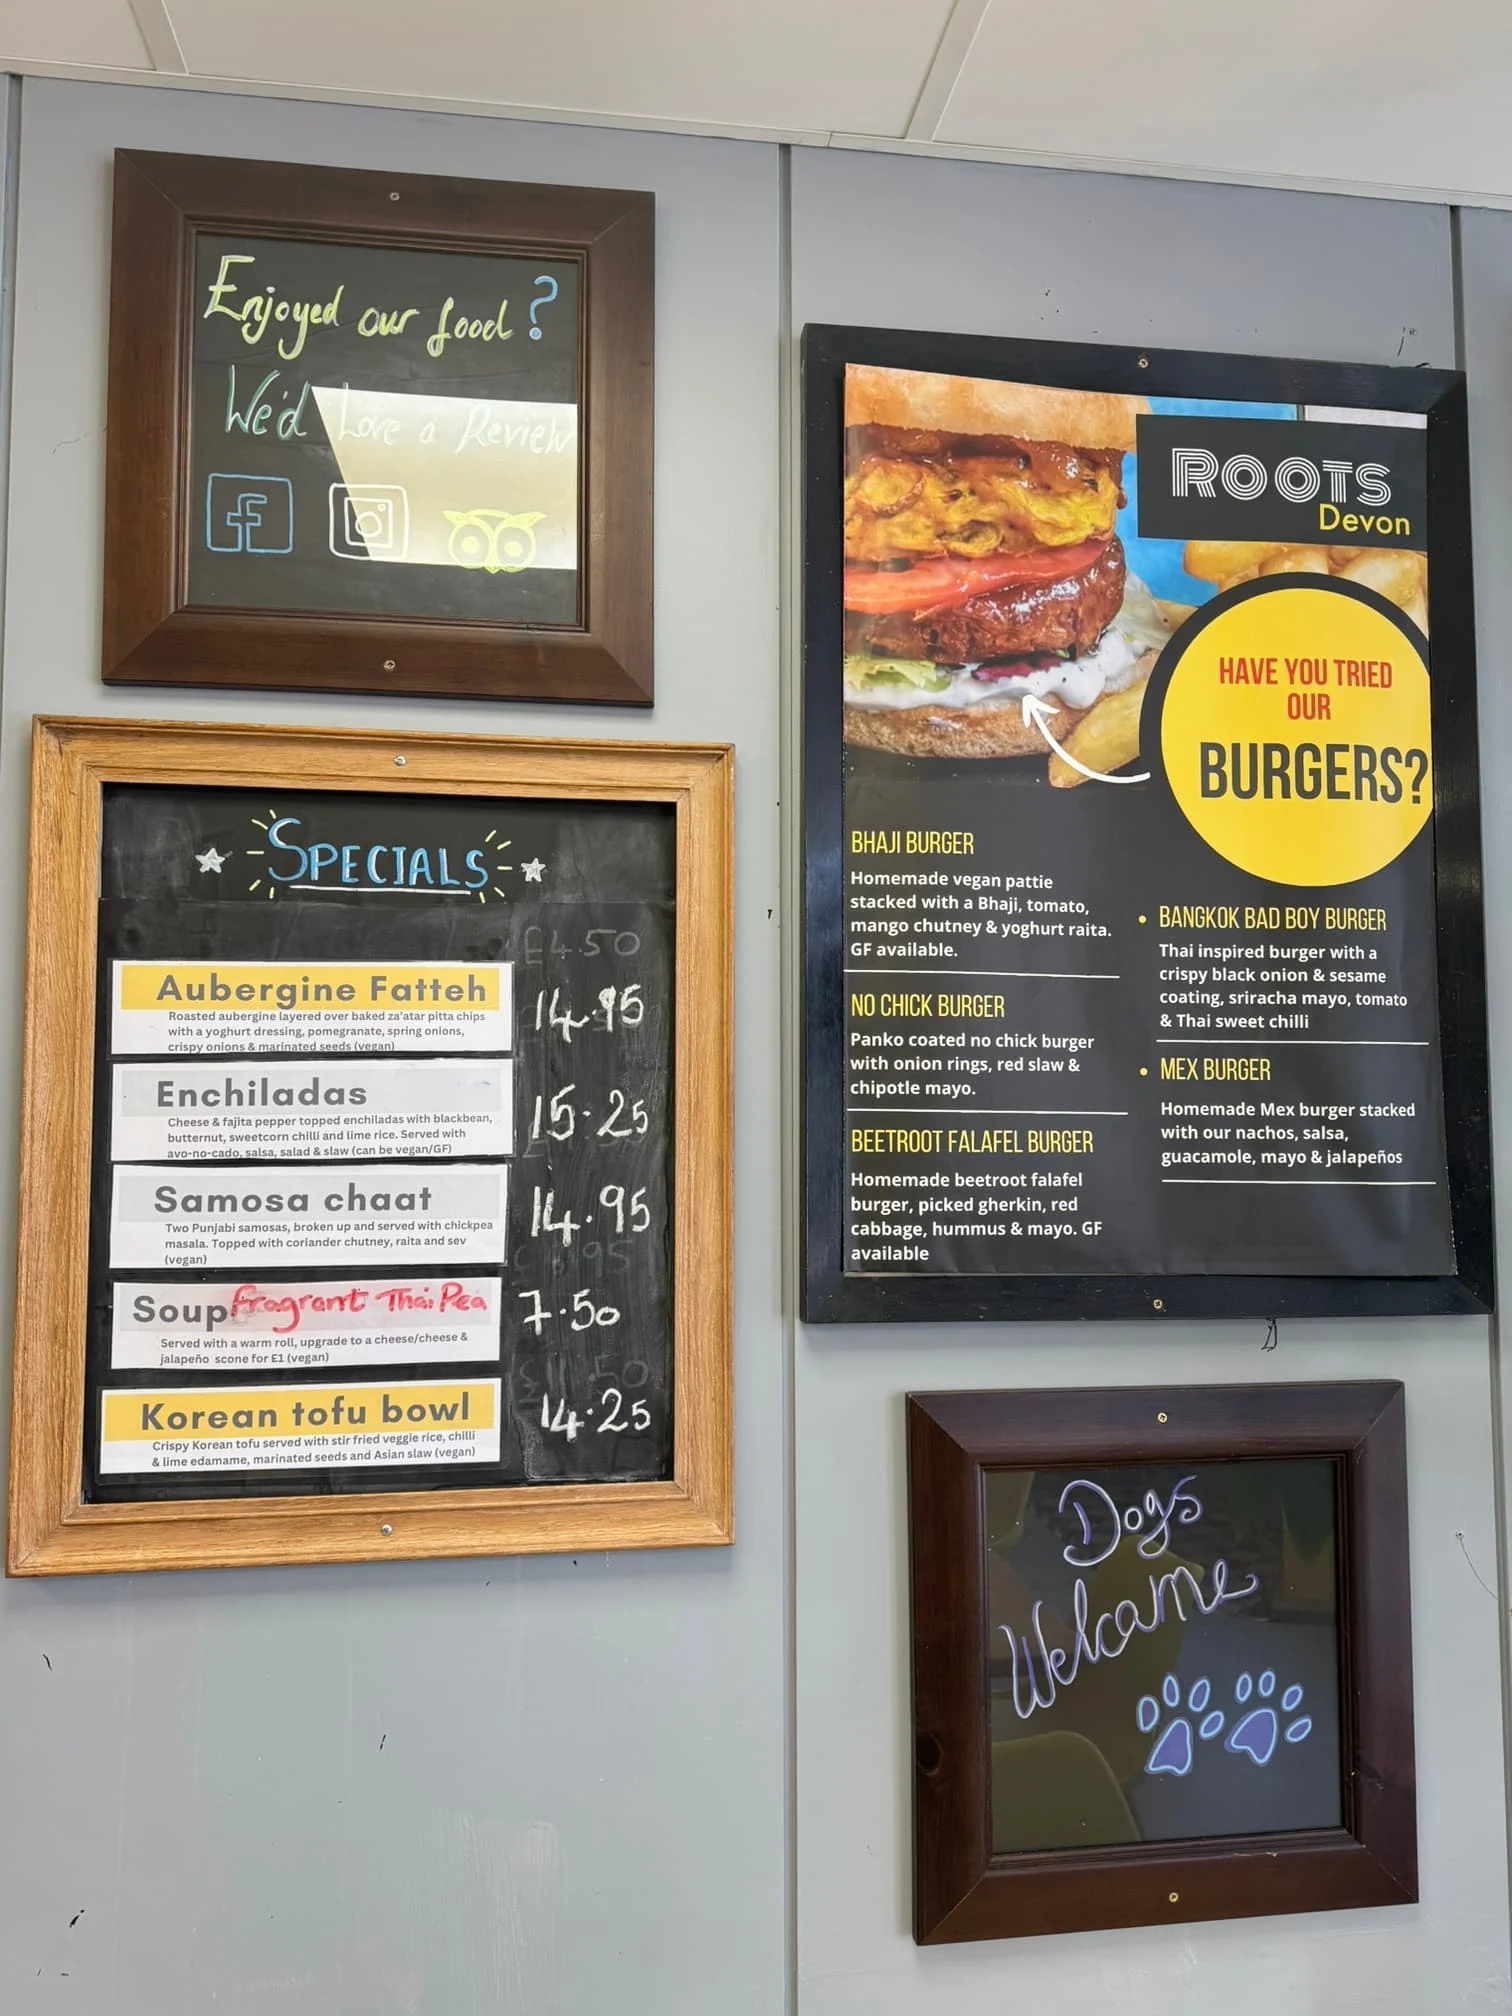 Enjoyed our food?
We'd Love a Review
SPECIALS
£4.50
Aubergine Fatteh
Roasted aubergine layered over baked za'atar pitta chips
with a yoghurt dressing, pomegranate, spring onions,
crispy onions & marinated seeds (vegan)
14.95
Enchiladas
Cheese & fajita pepper topped enchiladas with blackbean,
butternut, sweetcorn chilli and lime rice. Served with
avo-no-cado, salsa, salad & slaw (can be vegan/GF)
15.25
Samosa chaat
Two Punjabi samosas, broken up and served with chickpea
masala. Topped with coriander chutney, raita and sev
(vegan)
14.95
Soup fragrant Thai Pea
Served with a warm roll, upgrade to a cheese/cheese &
jalapeño scone for £1 (vegan)
7.50
Korean tofu bowl
Crispy Korean tofu served with stir fried veggie rice, chilli
& lime edamame, marinated seeds and Asian slaw (vegan)
14.25
ROOTS
Devon
HAVE YOU TRIED
OUR
BURGERS?
BHAJI BURGER
Homemade vegan pattie
stacked with a Bhaji, tomato,
mango chutney & yoghurt raita.
GF available.
NO CHICK BURGER
Panko coated no chick burger
with onion rings, red slaw &
chipotle mayo.
BEETROOT FALAFEL BURGER
Homemade beetroot falafel
burger, picked gherkin, red
cabbage, hummus & mayo. GF
available
• BANGKOK BAD BOY BURGER
Thai inspired burger with a
crispy black onion & sesame
coating, sriracha mayo, tomato
& Thai sweet chilli
• MEX BURGER
Homemade Mex burger stacked
with our nachos, salsa,
guacamole, mayo & jalapeños
Dogs
Welcome